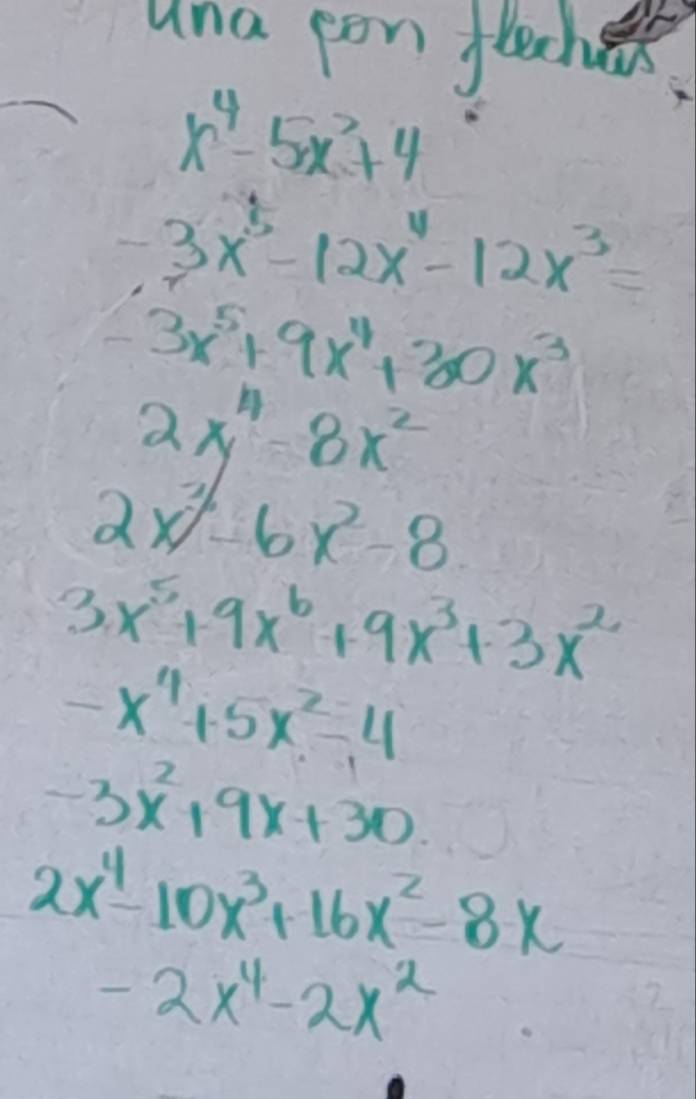 una con flechas
x⁴-5x²+4
-3x⁵-12x⁴-12x³=
-3x⁵+9x⁴+30x³
2x⁴-8x²
2x⁴-6x²-8
3x⁵+9x⁶+9x³+3x²
-x⁴+5x²-4
-3x²+9x+30
2x⁴-10x³+16x²-8x
-2x⁴-2x²